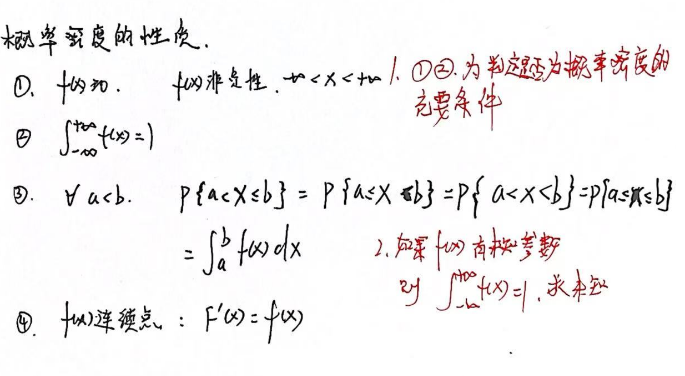 概率密度的性质.
①. f(x)≥0. f(x)非负性. -∞<x<+∞
1. ①②.为判定是否为概率密度的
充要条件
② ∫_{-∞}^{+∞} f(x)=1
③. ∀ a<b. P{a<X≤b} = P{a≤X<b} = P{a<X<b} = P{a≤X≤b}
= ∫_a^b f(x)dx
2. 如果 f(x) 有未知参数
则 ∫_{-∞}^{+∞} f(x)=1. 求未知
④. f(x)连续点: F'(x)=f(x)